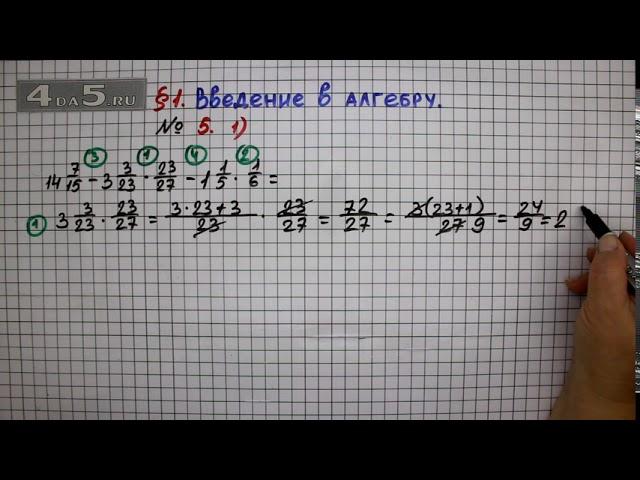 4DA5.RU
§1. Введение в алгебру.
№ 5. 1)
③ ① ④ ②
14 7/15 - 3 3/23 · 23/27 - 1 1/5 · 1/6 =
① 3 3/23 · 23/27 = 3·23+3/23 · 23/27 = 72/27 = 3(23+1)/27 9 = 24/9 = 2